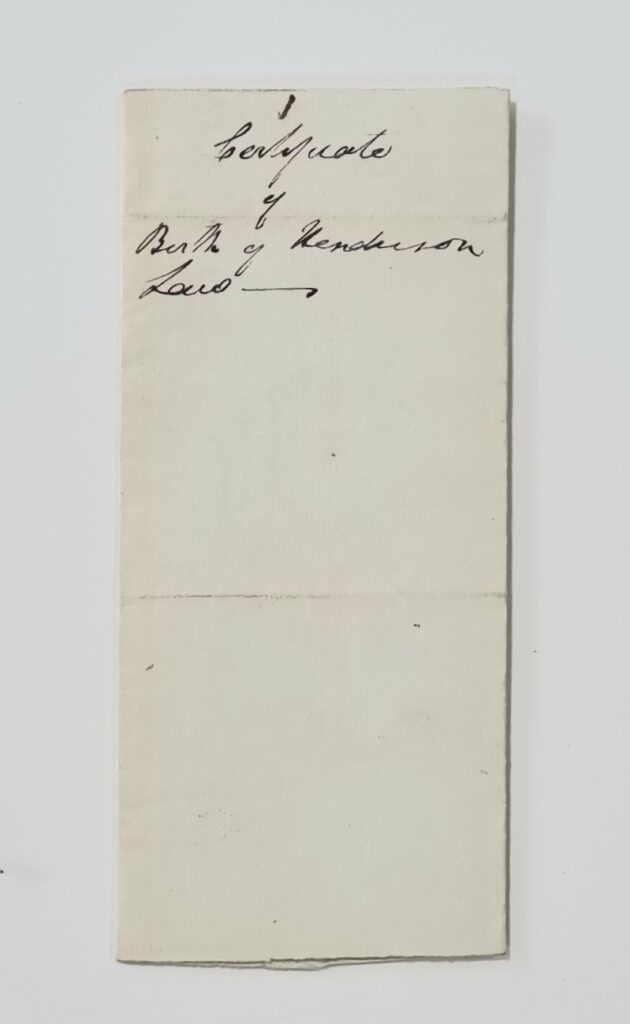 1
Certificate
of
Birth of Henderson